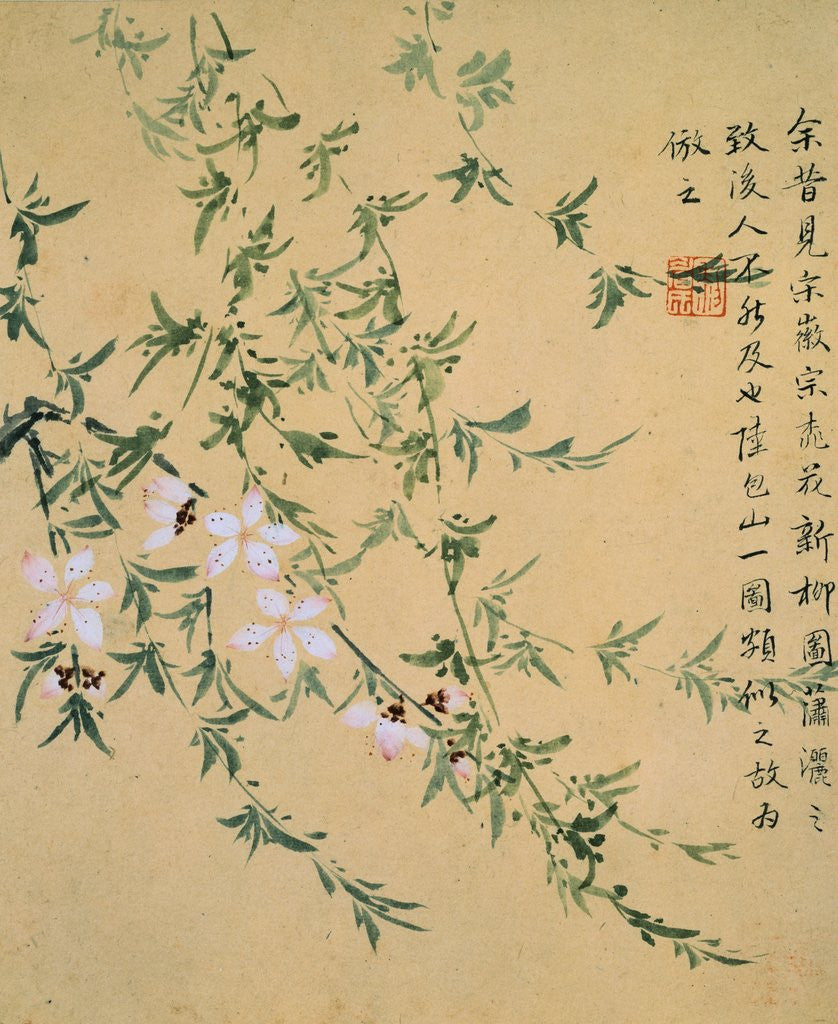 余昔見宋徽宗桃花新柳圖瀟灑之
致後人不能及也陸包山一圖頗似之故为
倣之